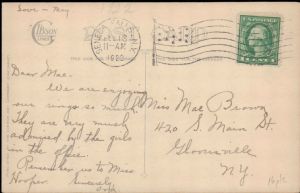 SENECA FALLS, N.Y.
11-AM
1920
Dear Mae.
We are enjoying
our rings so much
They are very much
admired by the girls
in the office.
Remember us to Miss
Hooper. Sincerely,
Miss Mae Brown
420 S. Main St.
Gloversville
N.Y.